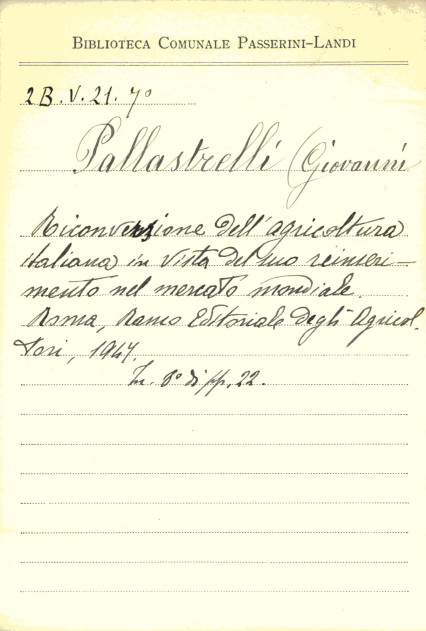 BIBLIOTECA COMUNALE PASSERINI-LANDI
2B.V.21.7º
Pallastrelli (Giovanni
Riconversione dell'agricoltura
italiana in vista del suo reinseri-
mento nel mercato mondiale.
Roma, Ramo Editoriale degli Agricol-
tori, 1947.
In. 8º di pp. 22.